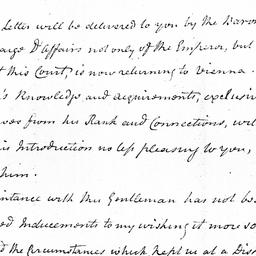 Letter will be delivered to you by the Baron
arge D'affairs not only of the Emperor, but
t this Court, is now returning to Vienna.
's Knowledge and acquirements, exclusiv
ves from his Rank and Connections, will
is Introduction no less pleasing to you,
him.
intance with this Gentleman has not be
ed Inducements to my wishing it more so
d the Circumstances which kept us at a Dis